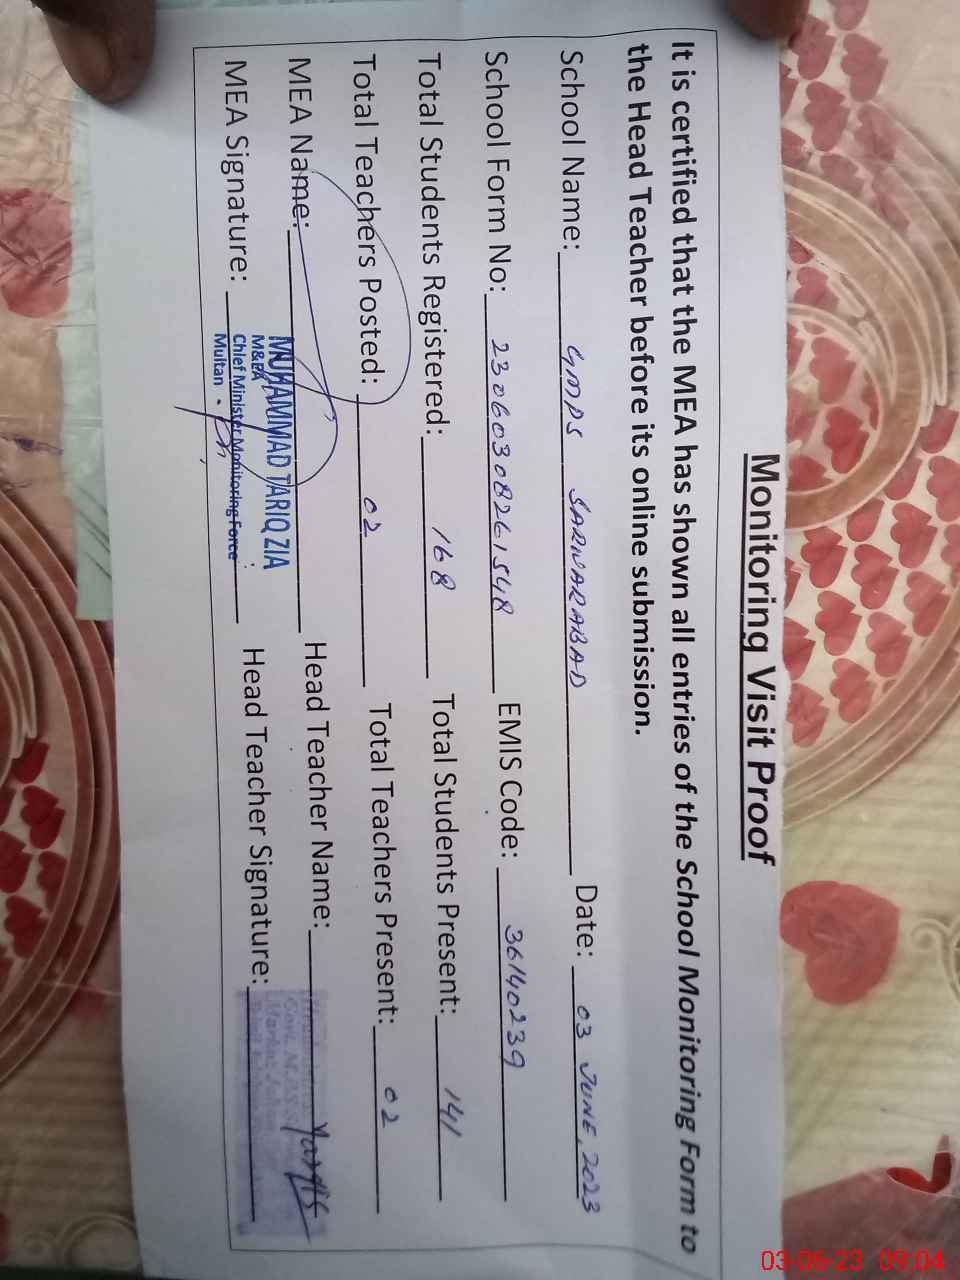 Monitoring Visit Proof
It is certified that the MEA has shown all entries of the School Monitoring Form to
the Head Teacher before its online submission.
School Name: GMPS SARWARABAD Date: 03 JUNE, 2023
School Form No: 23060308261548 EMIS Code: 36140239
Total Students Registered: 168 Total Students Present: 141
Total Teachers Posted: 02 Total Teachers Present: 02
MEA Name: Head Teacher Name:
MUHAMMAD TARIQ ZIA
M&EA
MEA Signature: Head Teacher Signature:
Chief Minister Monitoring Force
Multan
03-06-23 09:04